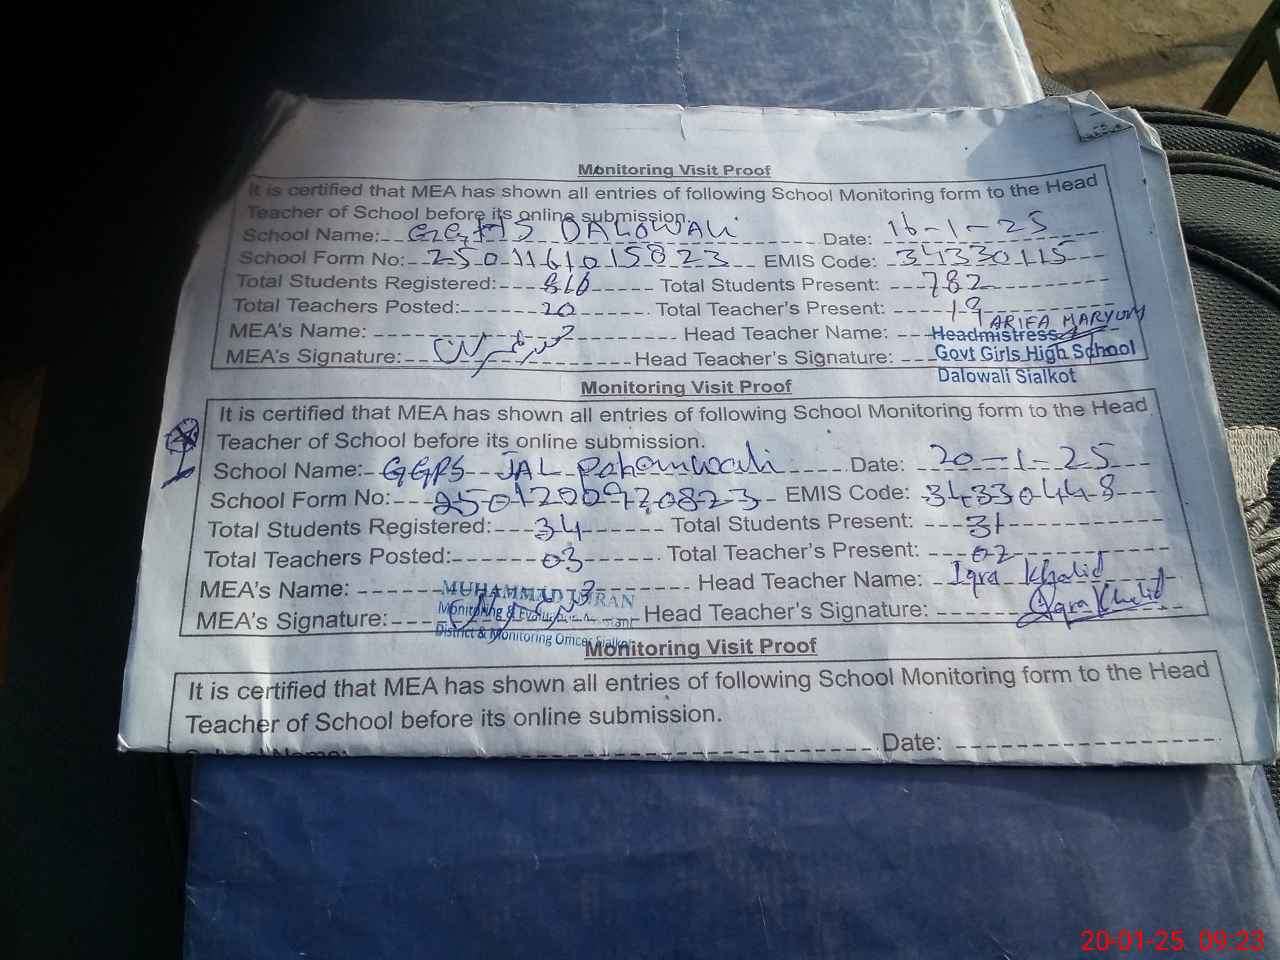 Monitoring Visit Proof
It is certified that MEA has shown all entries of following School Monitoring form to the Head
Teacher of School before its online submission.
School Name: GGHS DALOWALi Date: 16-1-25
School Form No: 2501161015823 EMIS Code: 34330115
Total Students Registered: 816 Total Students Present: 782
Total Teachers Posted: 20 Total Teacher's Present: 19
MEA's Name: Head Teacher Name: ARIFA MARYUM
Headmistress
MEA's Signature: Head Teacher's Signature: Govt Girls High School
Dalowali Sialkot
Monitoring Visit Proof
It is certified that MEA has shown all entries of following School Monitoring form to the Head
Teacher of School before its online submission.
School Name: GGPS JAL Date: 20-1-25
School Form No: EMIS Code: 34330448
Total Students Registered: 34 Total Students Present: 31
Total Teachers Posted: 03 Total Teacher's Present: 02
MEA's Name: MUHAMMAD Head Teacher Name: Iqra Khalid
Monitoring &
MEA's Signature: Head Teacher's Signature: Iqra Khalid
District & Monitoring Officer Sialkot
Monitoring Visit Proof
It is certified that MEA has shown all entries of following School Monitoring form to the Head
Teacher of School before its online submission.
School Name: Date:
20-01-25 09:23